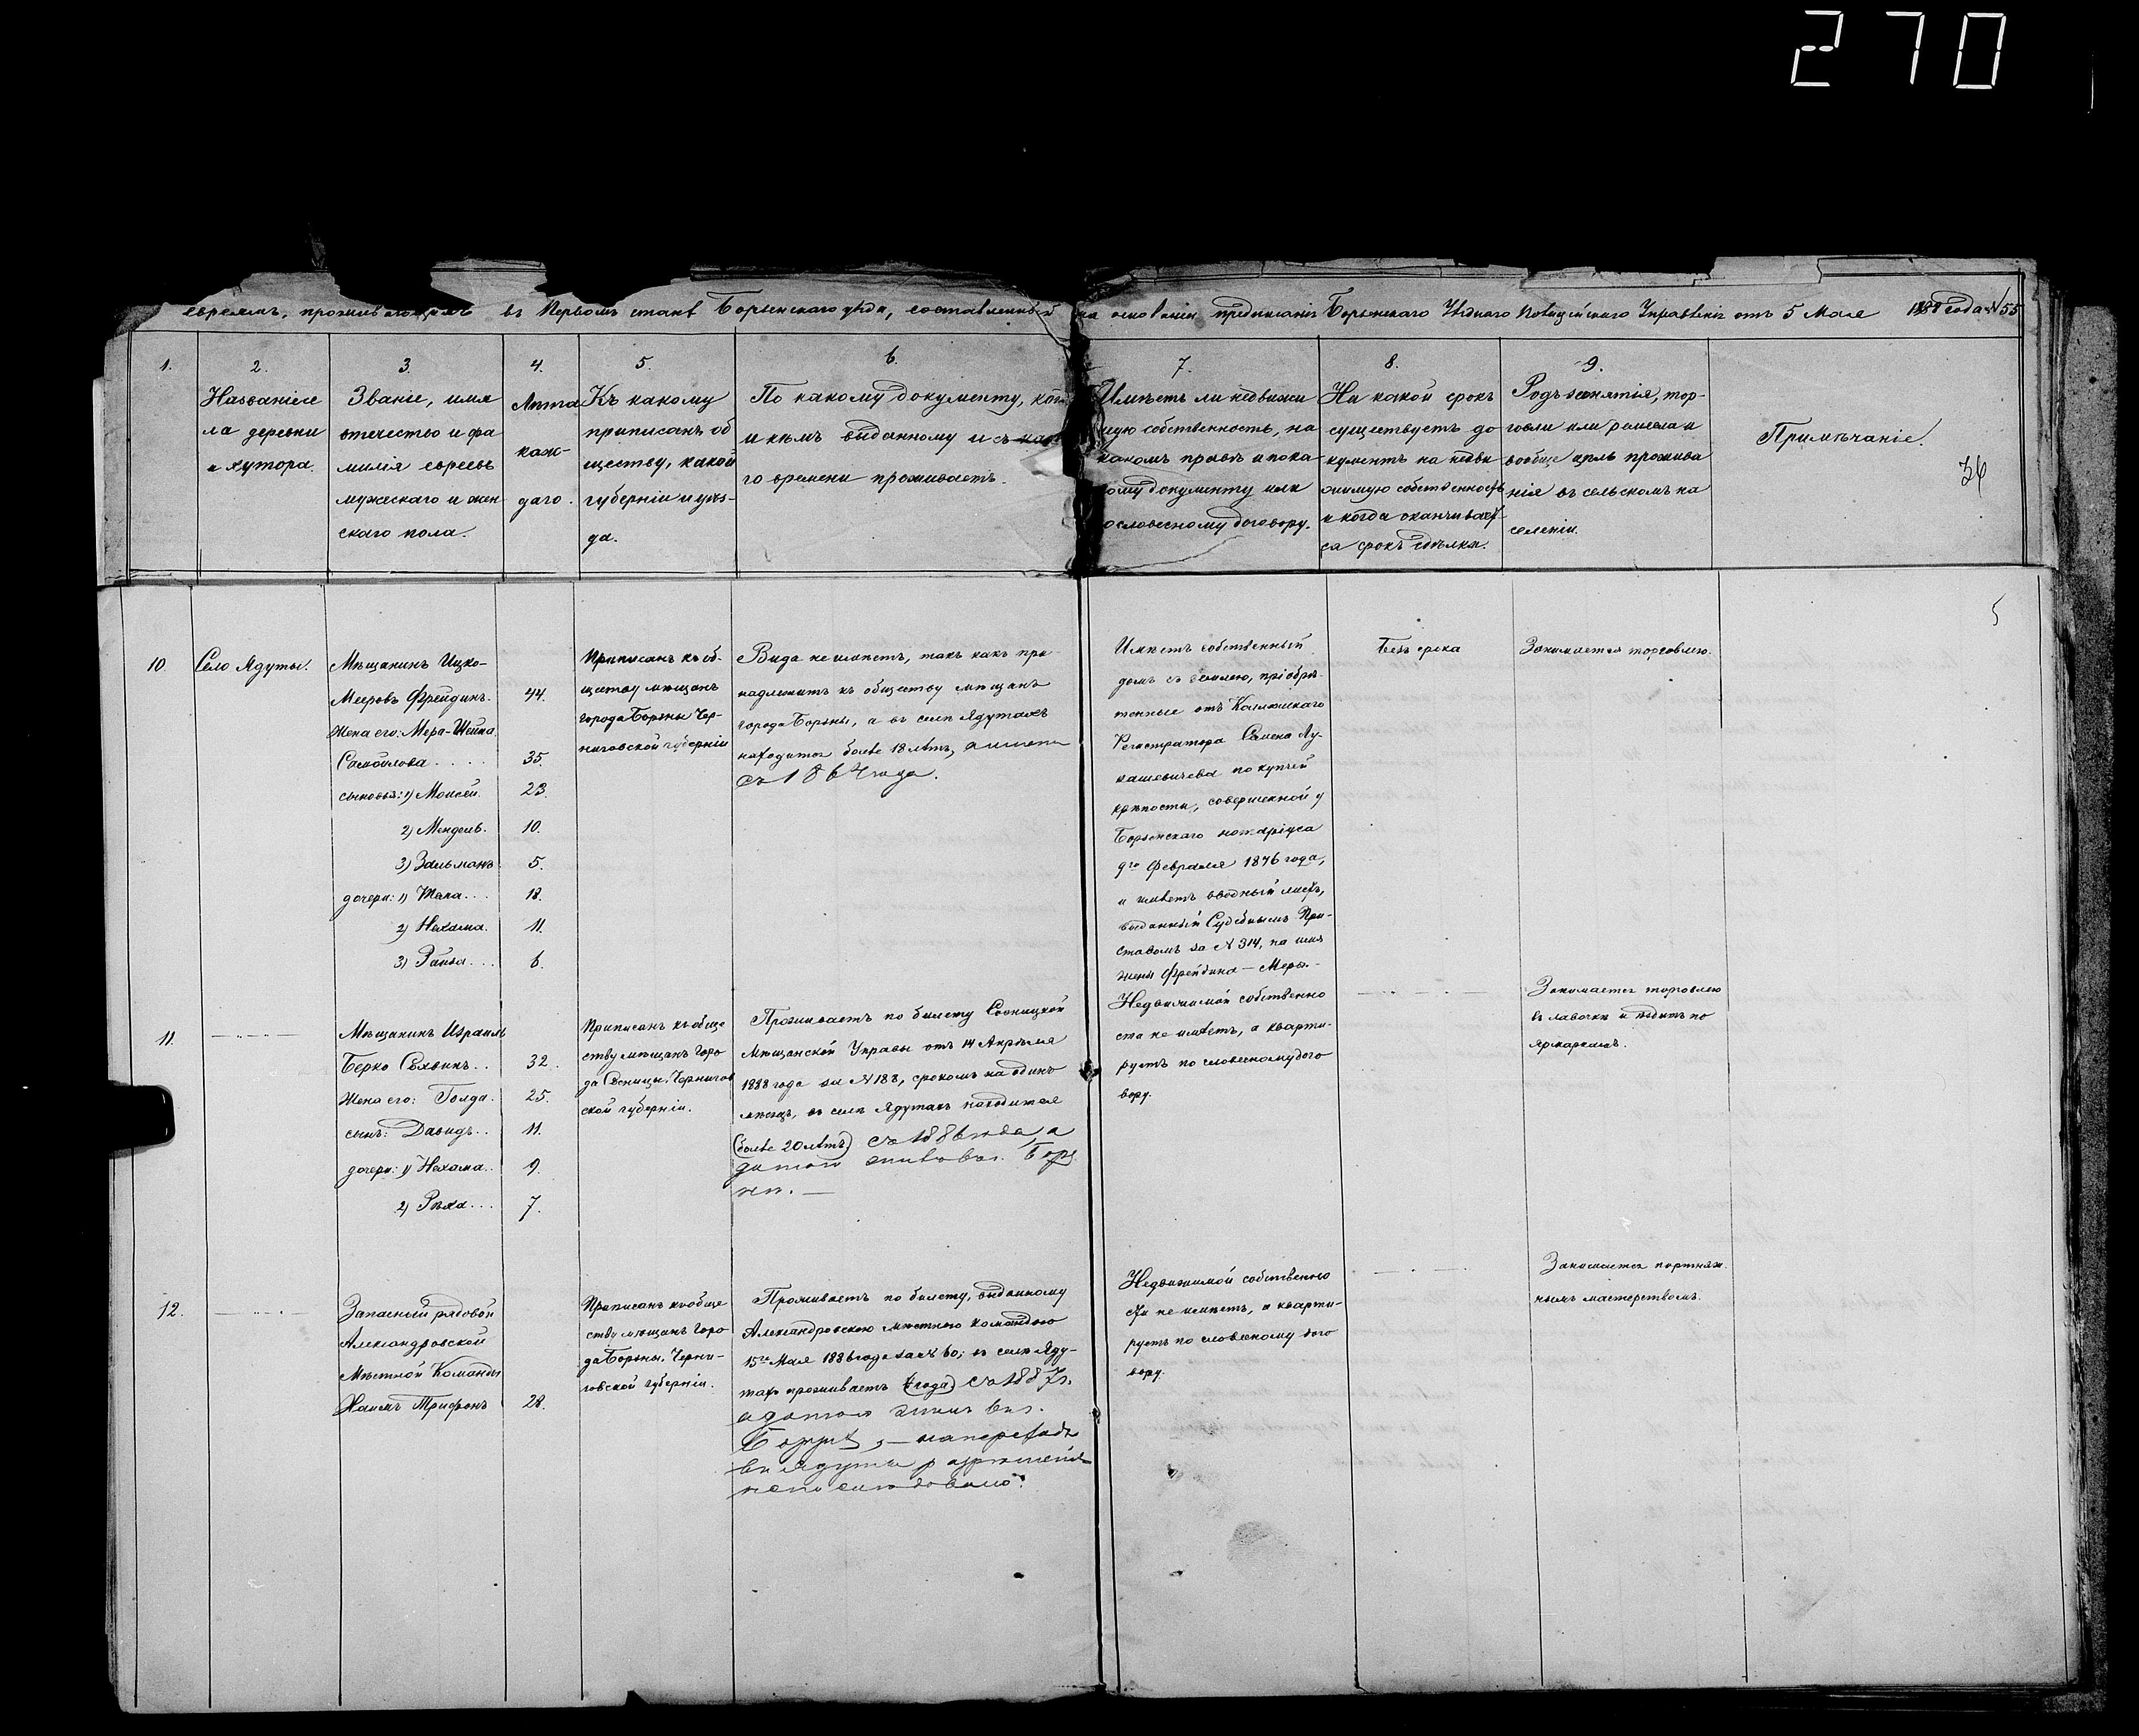 270
евреямъ, проживающимъ въ Первомъ станѣ Борзенскаго уѣзда, составленный на основаніи предписанія Борзенскаго Уѣзднаго Полицейскаго Управленія отъ 5 Мая 1888 года №55
1.
2.
Названіе се
ла деревни
и хутора.
3.
Званіе, имя
отечество и фа
милія евреевъ
мужескаго и жен
скаго пола.
4.
Лѣта
каж-
даго.
5.
Къ какому
приписанъ об
ществу, какой
губерніи и уѣз-
да.
6.
По какому документу,
и кѣмъ выданному и съ
го времени проживаетъ.
7.
Имѣетъ ли недвижи
мую собственность, на
какомъ правѣ и по ка
кому документу или
словесному договору.
8.
На какой срокъ
существуетъ до
кументъ на недви
жимую собственность
и когда оканчивает
ся срокъ сдѣлки.
9.
Родъ занятія, тор-
говли или ремесла и
вообще цѣль прожива
нія въ сельскомъ на
селеніи.
Примѣчаніе.
36
5
10.
Село Ядуты.
Мѣщанинъ Ицко-
Мееровъ Фрейдинъ. 44.
Жена его: Мера-Шейна
Самойлова . . . . 35.
сыновья: 1) Моисей. 23.
2) Мендель. 10.
3) Зальманъ. 5.
дочери: 1) . . . 18.
2) Нехама. 11.
3) . . . 6.
Приписанъ къ об-
ществу мѣщанъ
города Борзны Чер-
ниговской губерніи
Вида не имѣетъ, такъ какъ при-
надлежитъ къ обществу мѣщанъ
города Борзны, а въ селѣ Ядутахъ
находится болѣе 18 лѣтъ, а именно
съ 1864 года.
Имѣетъ собственный
домъ съ землею, пріобрѣ-
тенные отъ Коллежскаго
Регистратора Семена Лу-
кашевичева по купчей
крѣпости, совершенной у
Борзенскаго нотаріуса
9го Февраля 1876 года,
и имѣетъ вводный листъ,
выданный Судебнымъ При-
ставомъ за N 314, на имя
жены Фрейдина - Меры.
Безъ срока
Занимается торговлею.
11.
Мѣщанинъ Израиль
Берко . . 32.
Жена его: Голда. 25.
сынъ: Давидъ. . 11.
дочери: 1) Нехама. . 9.
2) Рыка . . . 7.
Приписанъ къ обще
ству мѣщанъ горо
да Сосницы, Чернигов
ской губерніи.
Проживаетъ по билету Сосницкой
Мѣщанской Управы отъ 14 Апрѣля
1888 года за N 188, срокомъ на одинъ
мѣсяцъ, въ селѣ Ядутахъ находится
(болѣе 20 лѣтъ) съ 1886 года, а
до того жилъ въ г. Борз
нѣ. —
Недвижимой собственно
сти не имѣетъ, а кварти-
руетъ по словесному дого
вору.
Занимается торговлею
въ лавочкѣ и ѣздитъ по
ярмаркамъ.
12.
Запасный рядовой
Александровской
Мѣстной Команды
Хаимъ Трифонъ 28.
Приписанъ къ обще
ству мѣщанъ горо
да Борзны, Черни-
говской губерніи.
Проживаетъ по билету, выданному
Александровскою мѣстною командою
15го Мая 1886 года за № 60; въ селѣ Яду-
тахъ проживаетъ (года) съ 1887 г.
а до того жилъ въ г.
Борзнѣ, — на переходъ
въ Ядуты разрѣшенія
не послѣдовало.
Недвижимой собственно
сти не имѣетъ, а кварти-
руетъ по словесному дого
вору.
Занимается портняж-
нымъ мастерствомъ.